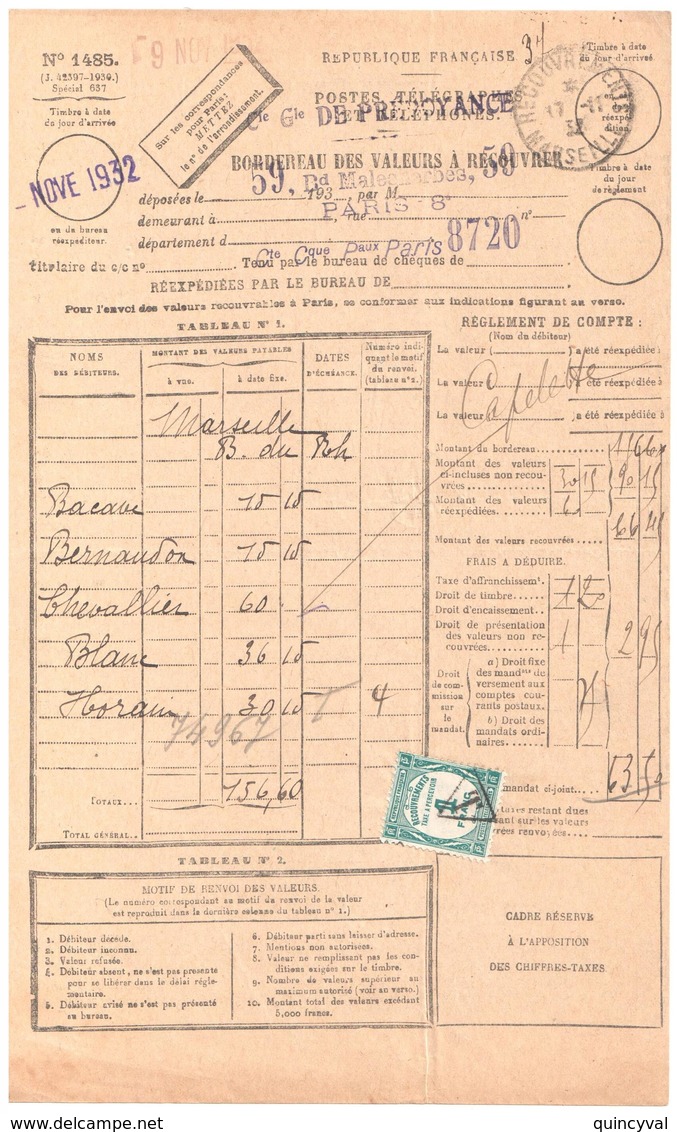 N° 1485.
(J. 42397-1930.)
Spécial 637
9 NOV
Sur les correspondances
pour Paris:
METTEZ
le n° de l'arrondissement.
RÉPUBLIQUE FRANÇAISE
POSTES, TÉLÉGRAPHES
ET TÉLÉPHONES.
Cie Gle DE PREVOYANCE
BORDEREAU DES VALEURS À RECOUVRER
59, Bd Malesherbes, 59
PARIS-8e
RECOUVREMENTS
17 -11
32
MARSEILLE
Timbre à date
du jour d'arrivée
en du bureau
réexpéditeur.
- NOVE 1932
Timbre à date
du jour d'arrivée
Timbre à date
du jour
de règlement
déposées le 193 , par M
demeurant à , rue n°
département d
Cte Cque Paux Paris 8720
titulaire du c/c n° . Tenu par le bureau de chèques de
RÉEXPÉDIÉES PAR LE BUREAU DE
Pour l'envoi des valeurs recouvrables à Paris, se conformer aux indications figurant au verso.
TABLEAU N° 1.
NOMS
DES DÉBITEURS.
MONTANT DES VALEURS PAYABLES
à vue.
à date fixe.
DATES
D'ÉCHÉANCE.
Numéro indi-
quant le motif
du renvoi.
(tableau n° 2.)
Marseille
B. du Rh
Bacave 15 15
Bernaudon 15 15
Chevallier 60
Blanc 36 15
Horain 30 15 4
74967
TOTAUX... 156,60
TOTAL GÉNÉRAL..
RÈGLEMENT DE COMPTE :
(Nom du débiteur)
La valeur ( ) a été réexpédiée à
La valeur ( ) a été réexpédiée à
La valeur ( ) a été réexpédiée à
Capelette
Montant du bordereau
Montant des valeurs
ci-incluses non recou-
vrées 30 15 90 15
Montant des valeurs
réexpédiées. 60
Montant des valeurs recouvrées. 66 45
FRAIS A DÉDUIRE.
Taxe d'affranchissemt.
Droit de timbre.
Droit d'encaissement.
Droit de présentation
des valeurs non re-
couvrées. 1 2 95
Droit
de com-
mission
sur
le
mandat.
a) Droit fixe
des mandts de
versement aux
comptes cou-
rants postaux.
b) Droit des
mandats ordi-
naires.
mandat ci-joint. 63 50
taxes restant dues
sant sur les valeurs
uvrées renvoyées.
RECOUVREMENTS
TAXE A PERCEVOIR
1
FRANC
TABLEAU N° 2.
MOTIF DE RENVOI DES VALEURS.
(Le numéro correspondant au motif du renvoi de la valeur
est reproduit dans la dernière colonne du tableau n° 1.)
1. Débiteur décédé.
2. Débiteur inconnu.
3. Valeur refusée.
4. Débiteur absent, ne s'est pas présenté
pour se libérer dans le délai régle-
mentaire.
5. Débiteur avisé ne s'est pas présenté
au bureau.
6. Débiteur parti sans laisser d'adresse.
7. Mentions non autorisées.
8. Valeur ne remplissant pas les con-
ditions exigées sur le timbre.
9. Nombre de valeurs supérieur au
maximum autorisé (voir au verso.)
10. Montant total des valeurs excédant
5,000 francs.
CADRE RÉSERVÉ
À L'APPOSITION
DES CHIFFRES-TAXES
quincyval